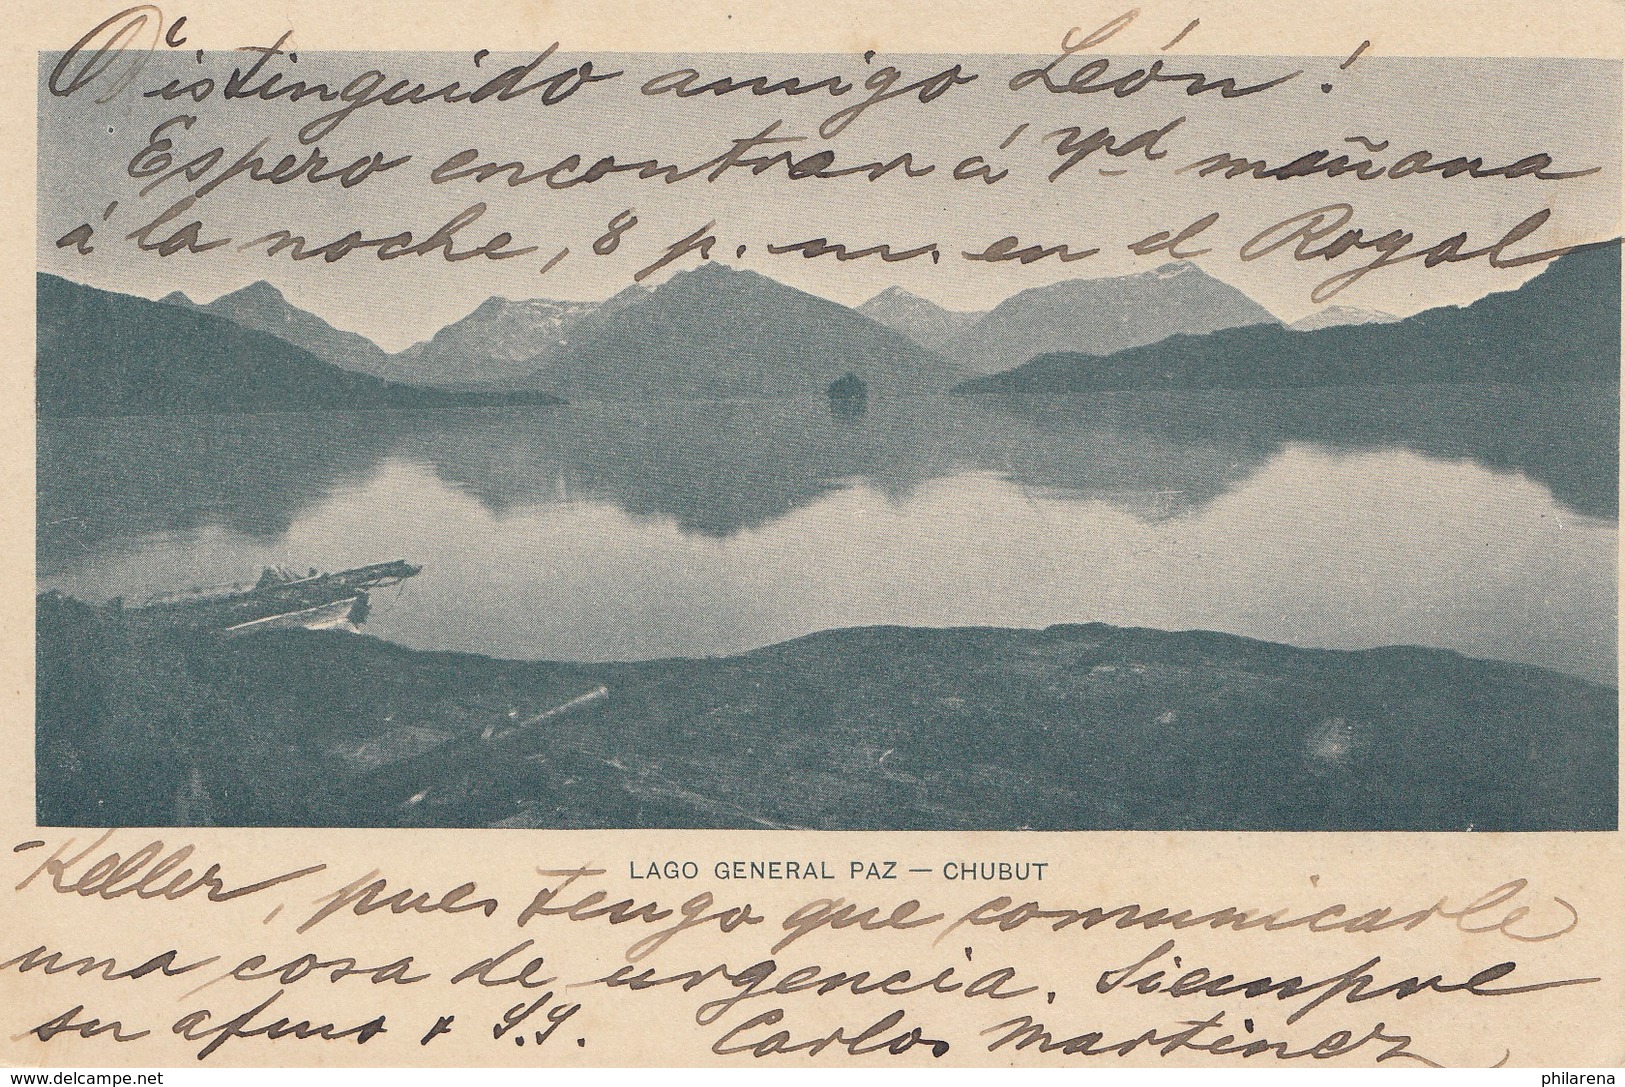 Distinguido amigo León!
Espero encontrar á Vd mañana
á la noche, 8 p. m. en el Royal
LAGO GENERAL PAZ — CHUBUT
-Keller, pues tengo que comunicarle
una cosa de urgencia. Siempre
su afmo + S.S. Carlos Martinez
www.delcampe.net
philarena